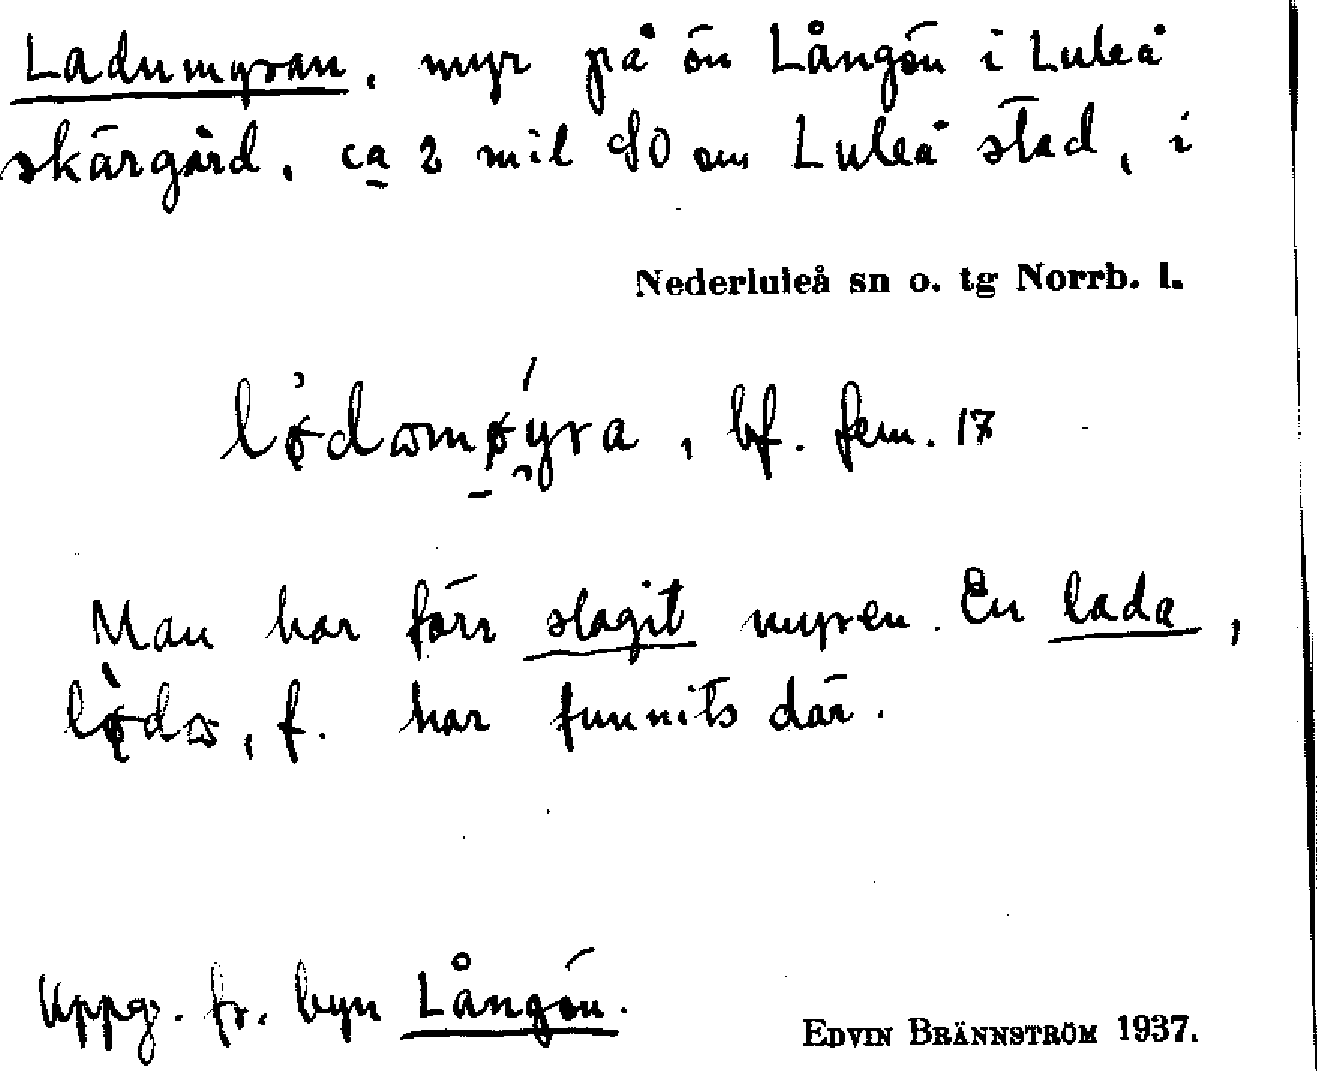 Ladumyran, myr på ön Långön i Luleå
skärgård, ca 2 mil SO om Luleå stad, i
Nederluleå sn o. tg Norrb. l.
bf. fem. 17
Man har förr slagit myren. En lada,
f. har funnits där.
Uppg. fr. byn Långön.
EDVIN BRÄNNSTRÖM 1937.